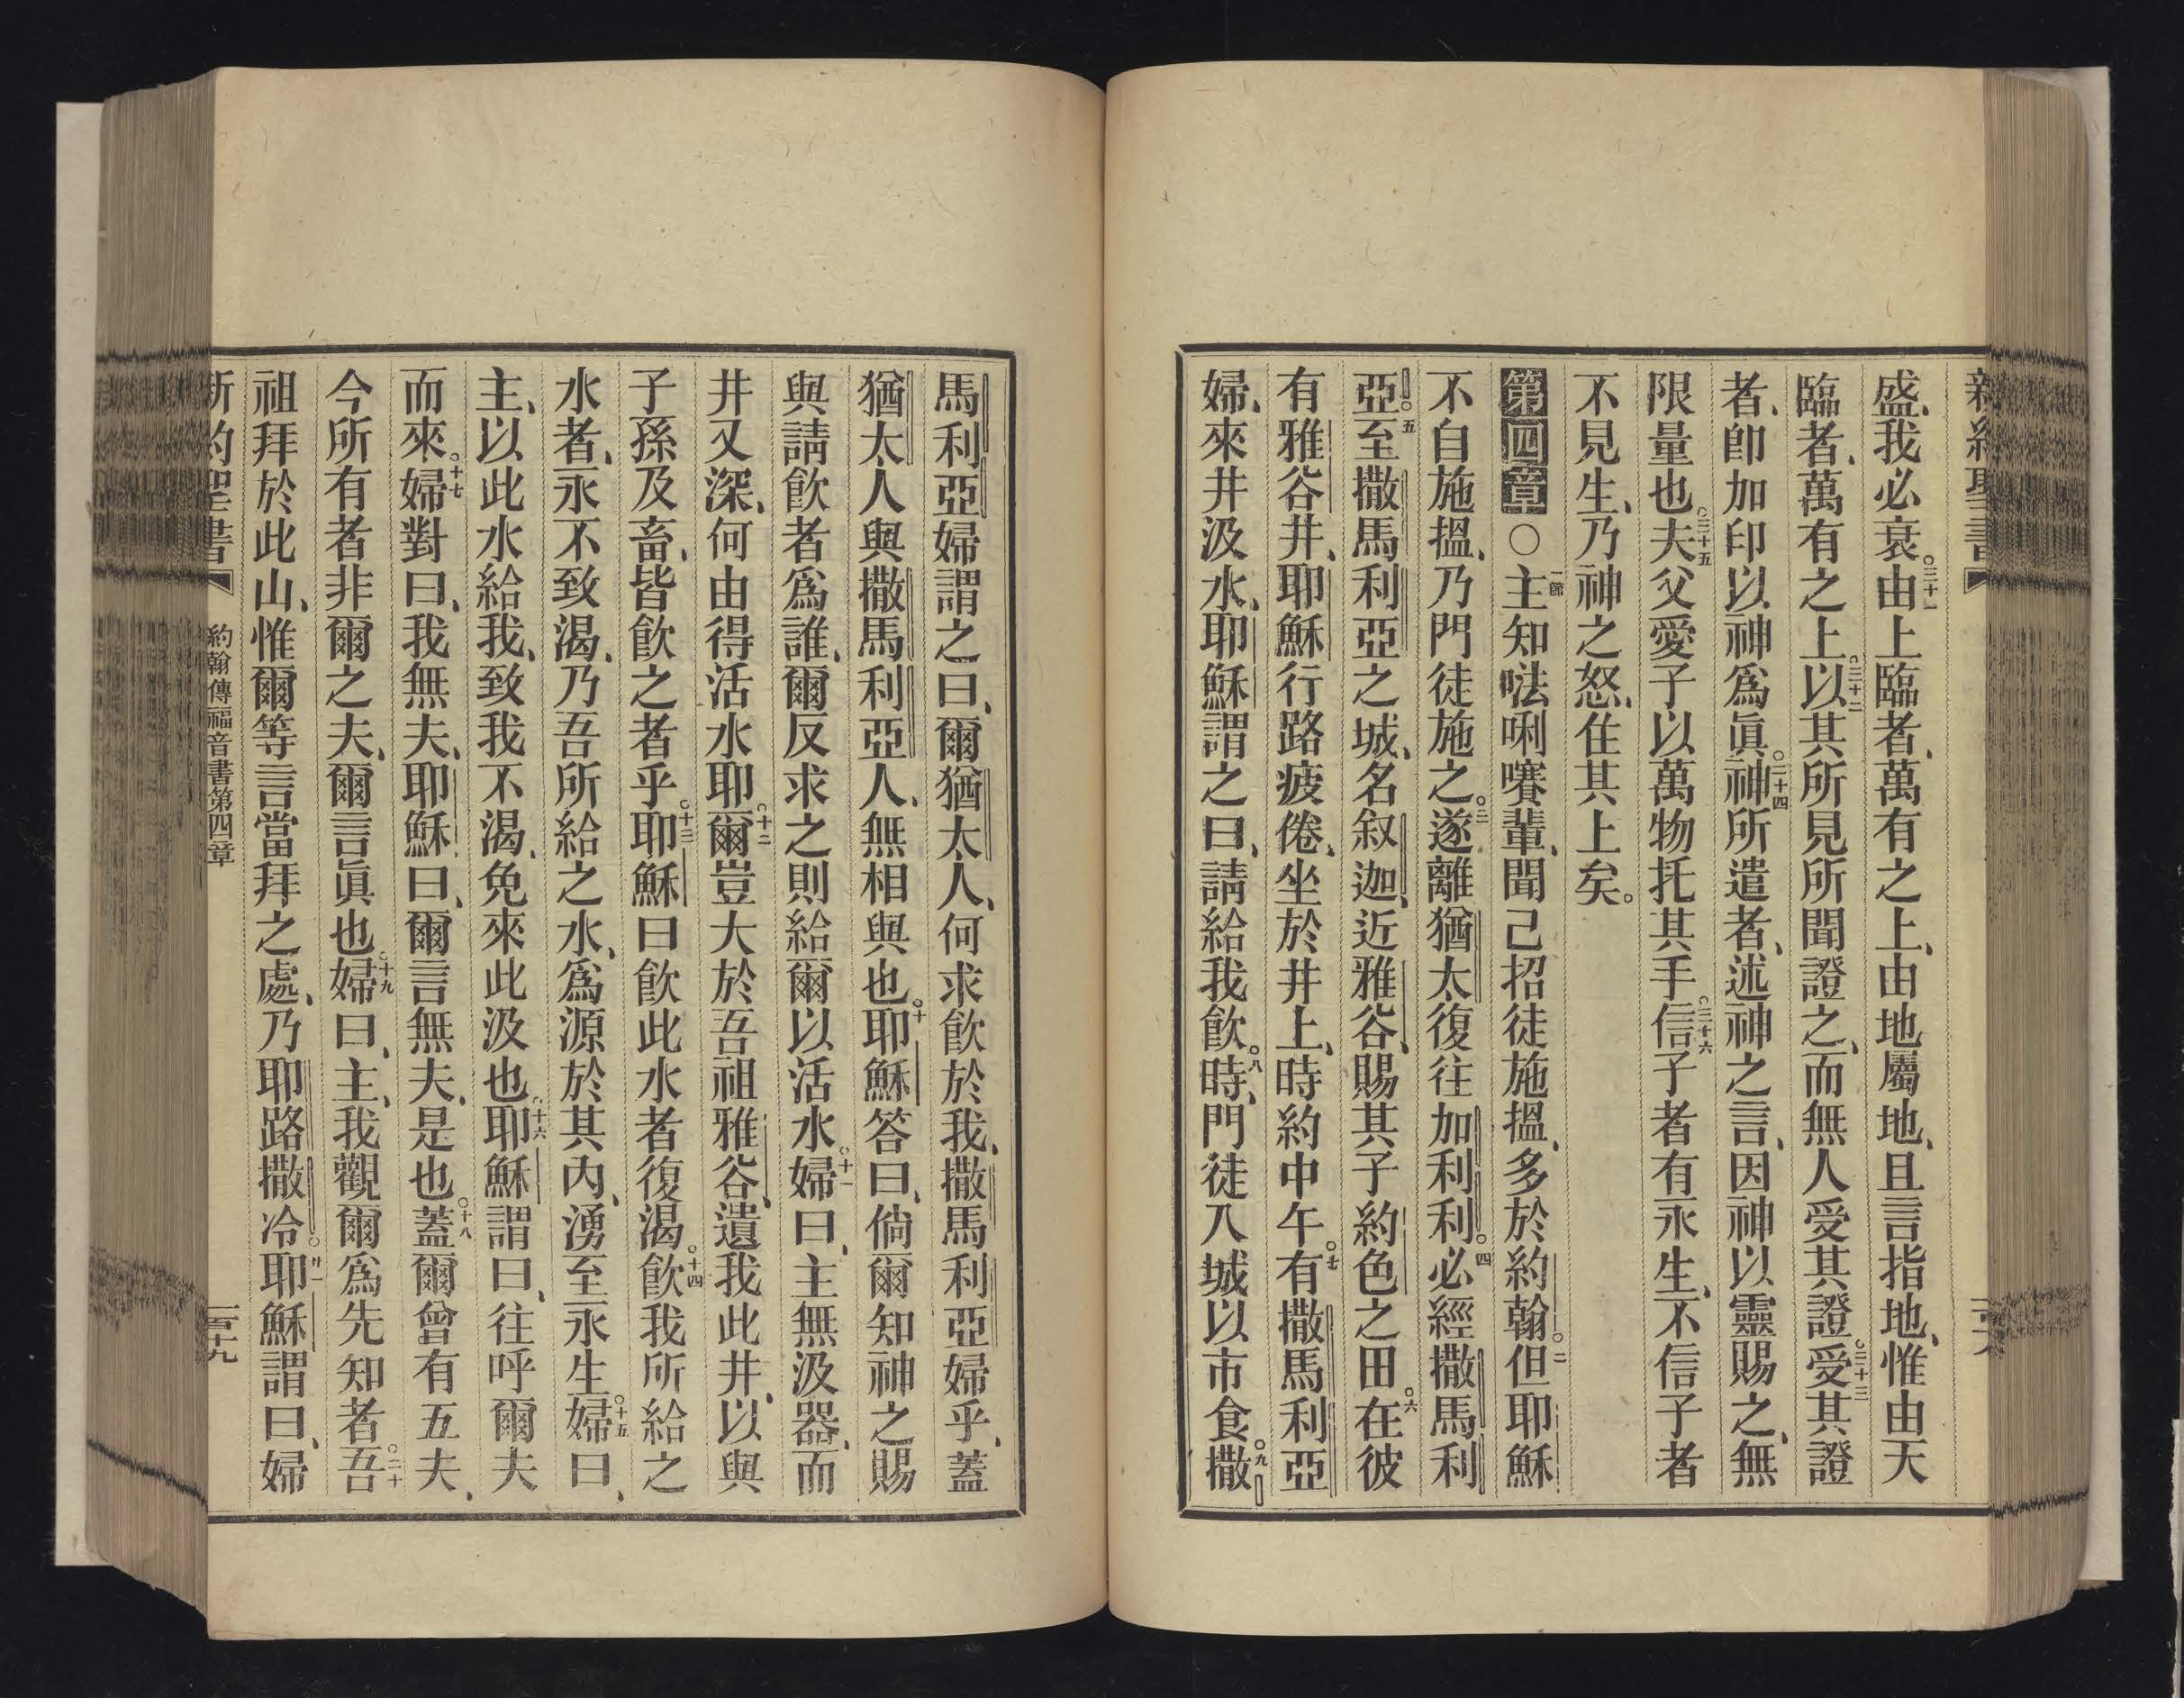 新約聖書
盛、我必衰。三十一由上臨者、萬有之上、由地屬地、且言指地、惟由天
臨者、萬有之上。三十二以其所見所聞證之、而無人受其證。三十三受其證
者、卽加印以神爲眞。三十四神所遣者、述神之言、因神以靈賜之、無
限量也。三十五夫父愛子以萬物托其手。三十六信子者有永生、不信子者
不見生、乃神之怒、住其上矣。
第四章○一節主知𠵽唎㘔輩、聞己招徒施搵、多於約翰。二但耶穌
不自施搵、乃門徒施之。三遂離猶太復往加利利。四必經撒馬利
亞。五至撒馬利亞之城、名叙迦、近雅谷、賜其子約色之田。六在彼
有雅谷井、耶穌行路疲倦、坐於井上、時約中午。七有撒馬利亞
婦、來井汲水、耶穌謂之曰、請給我飮。八時、門徒入城以市食。九撒
馬利亞婦謂之曰、爾猶太人、何求飮於我、撒馬利亞婦乎、蓋
猶太人與撒馬利亞人、無相與也。十耶穌答曰、倘爾知神之賜
與請飮者爲誰、爾反求之則給爾以活水。十一婦曰、主無汲器、而
井又深、何由得活水耶。十二爾豈大於吾祖雅谷、遺我此井、以與
子孫及畜、皆飮之者乎。十三耶穌曰飮此水者復渴。十四飮我所給之
水者、永不致渴、乃吾所給之水、爲源於其內、湧至永生。十五婦曰、
主、以此水給我、致我不渴、免來此汲也。十六耶穌謂曰、往呼爾夫
而來。十七婦對曰、我無夫、耶穌曰、爾言無夫、是也。十八蓋爾曾有五夫、
今所有者非爾之夫、爾言眞也。十九婦曰、主、我觀爾爲先知者。二十吾
祖拜於此山、惟爾等言當拜之處、乃耶路撒冷。廿一耶穌謂曰、婦
新約聖書 約翰傳福音書第四章 百十九